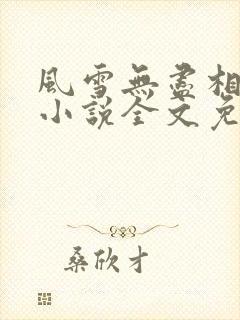 風雪無盡相
小説全文免
桑欣才